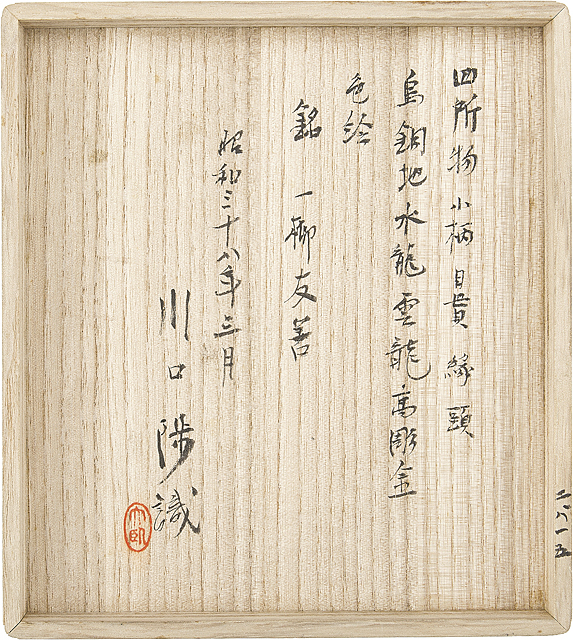 四所物 小柄 目貫 縁 頭
烏銅地水龍雲龍高彫金
色絵
銘 一柳友善
昭和三十八年三月
川口陟識
二八一五